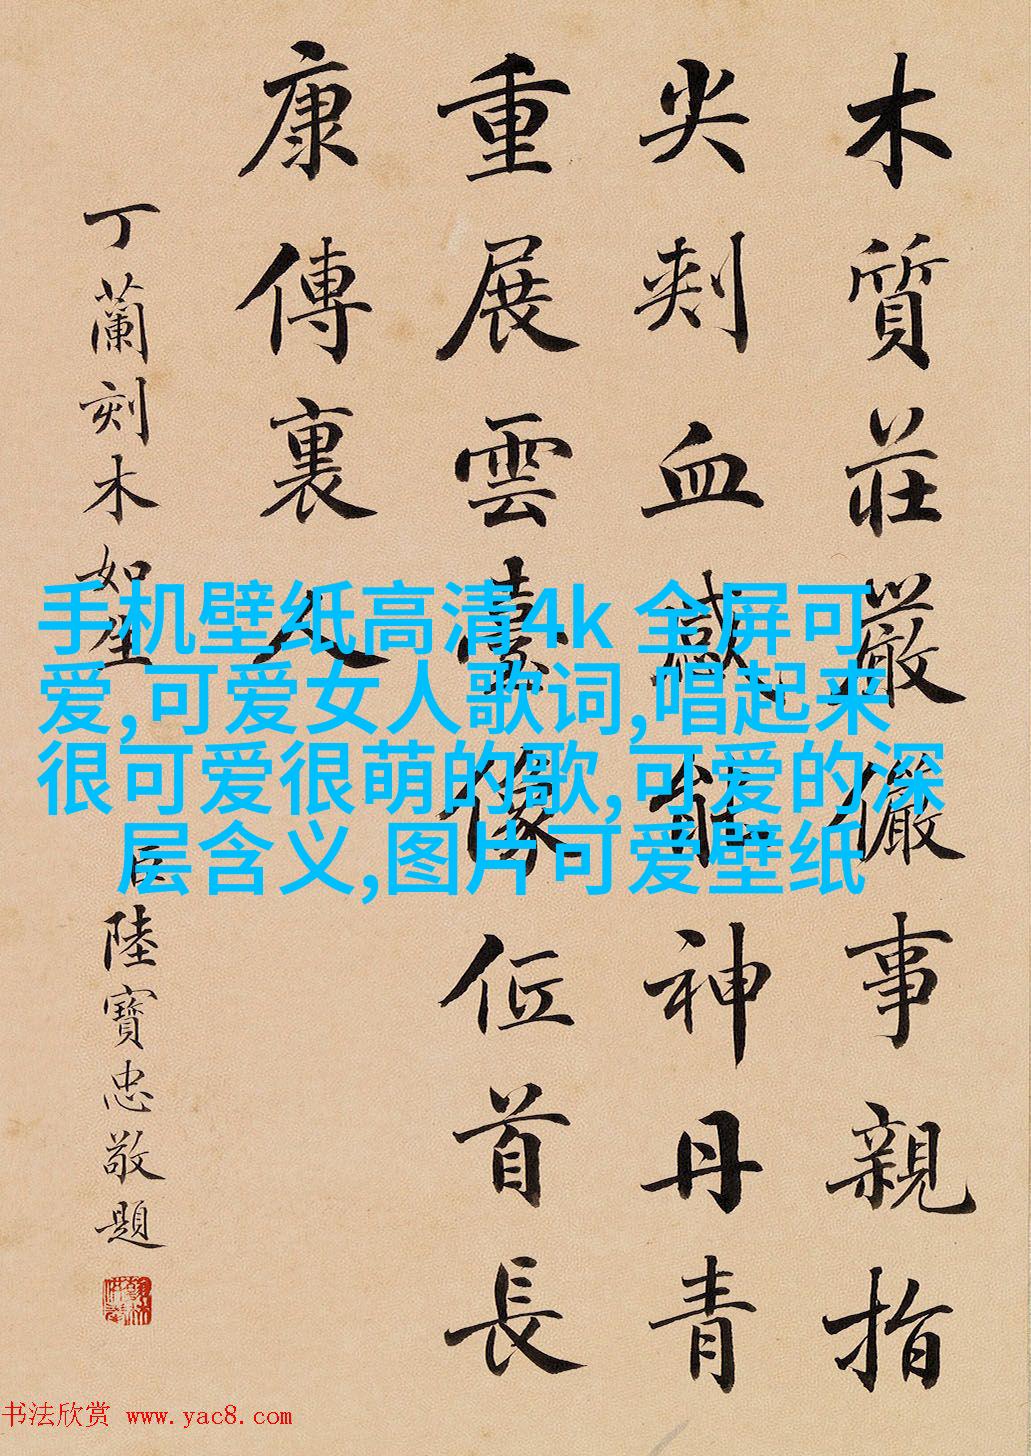 木質莊嚴儼事親指
尖刾血感能神丹青
重展雲臺像位首長
康傳裏人
丁蘭刻木如生
臣陸寶忠敬題
手机壁纸高清4k 全屏可
爱,可爱女人歌词,唱起来
很可爱很萌的歌,可爱的深
层含义,图片可爱壁纸
书法欣赏 www.yac8.com